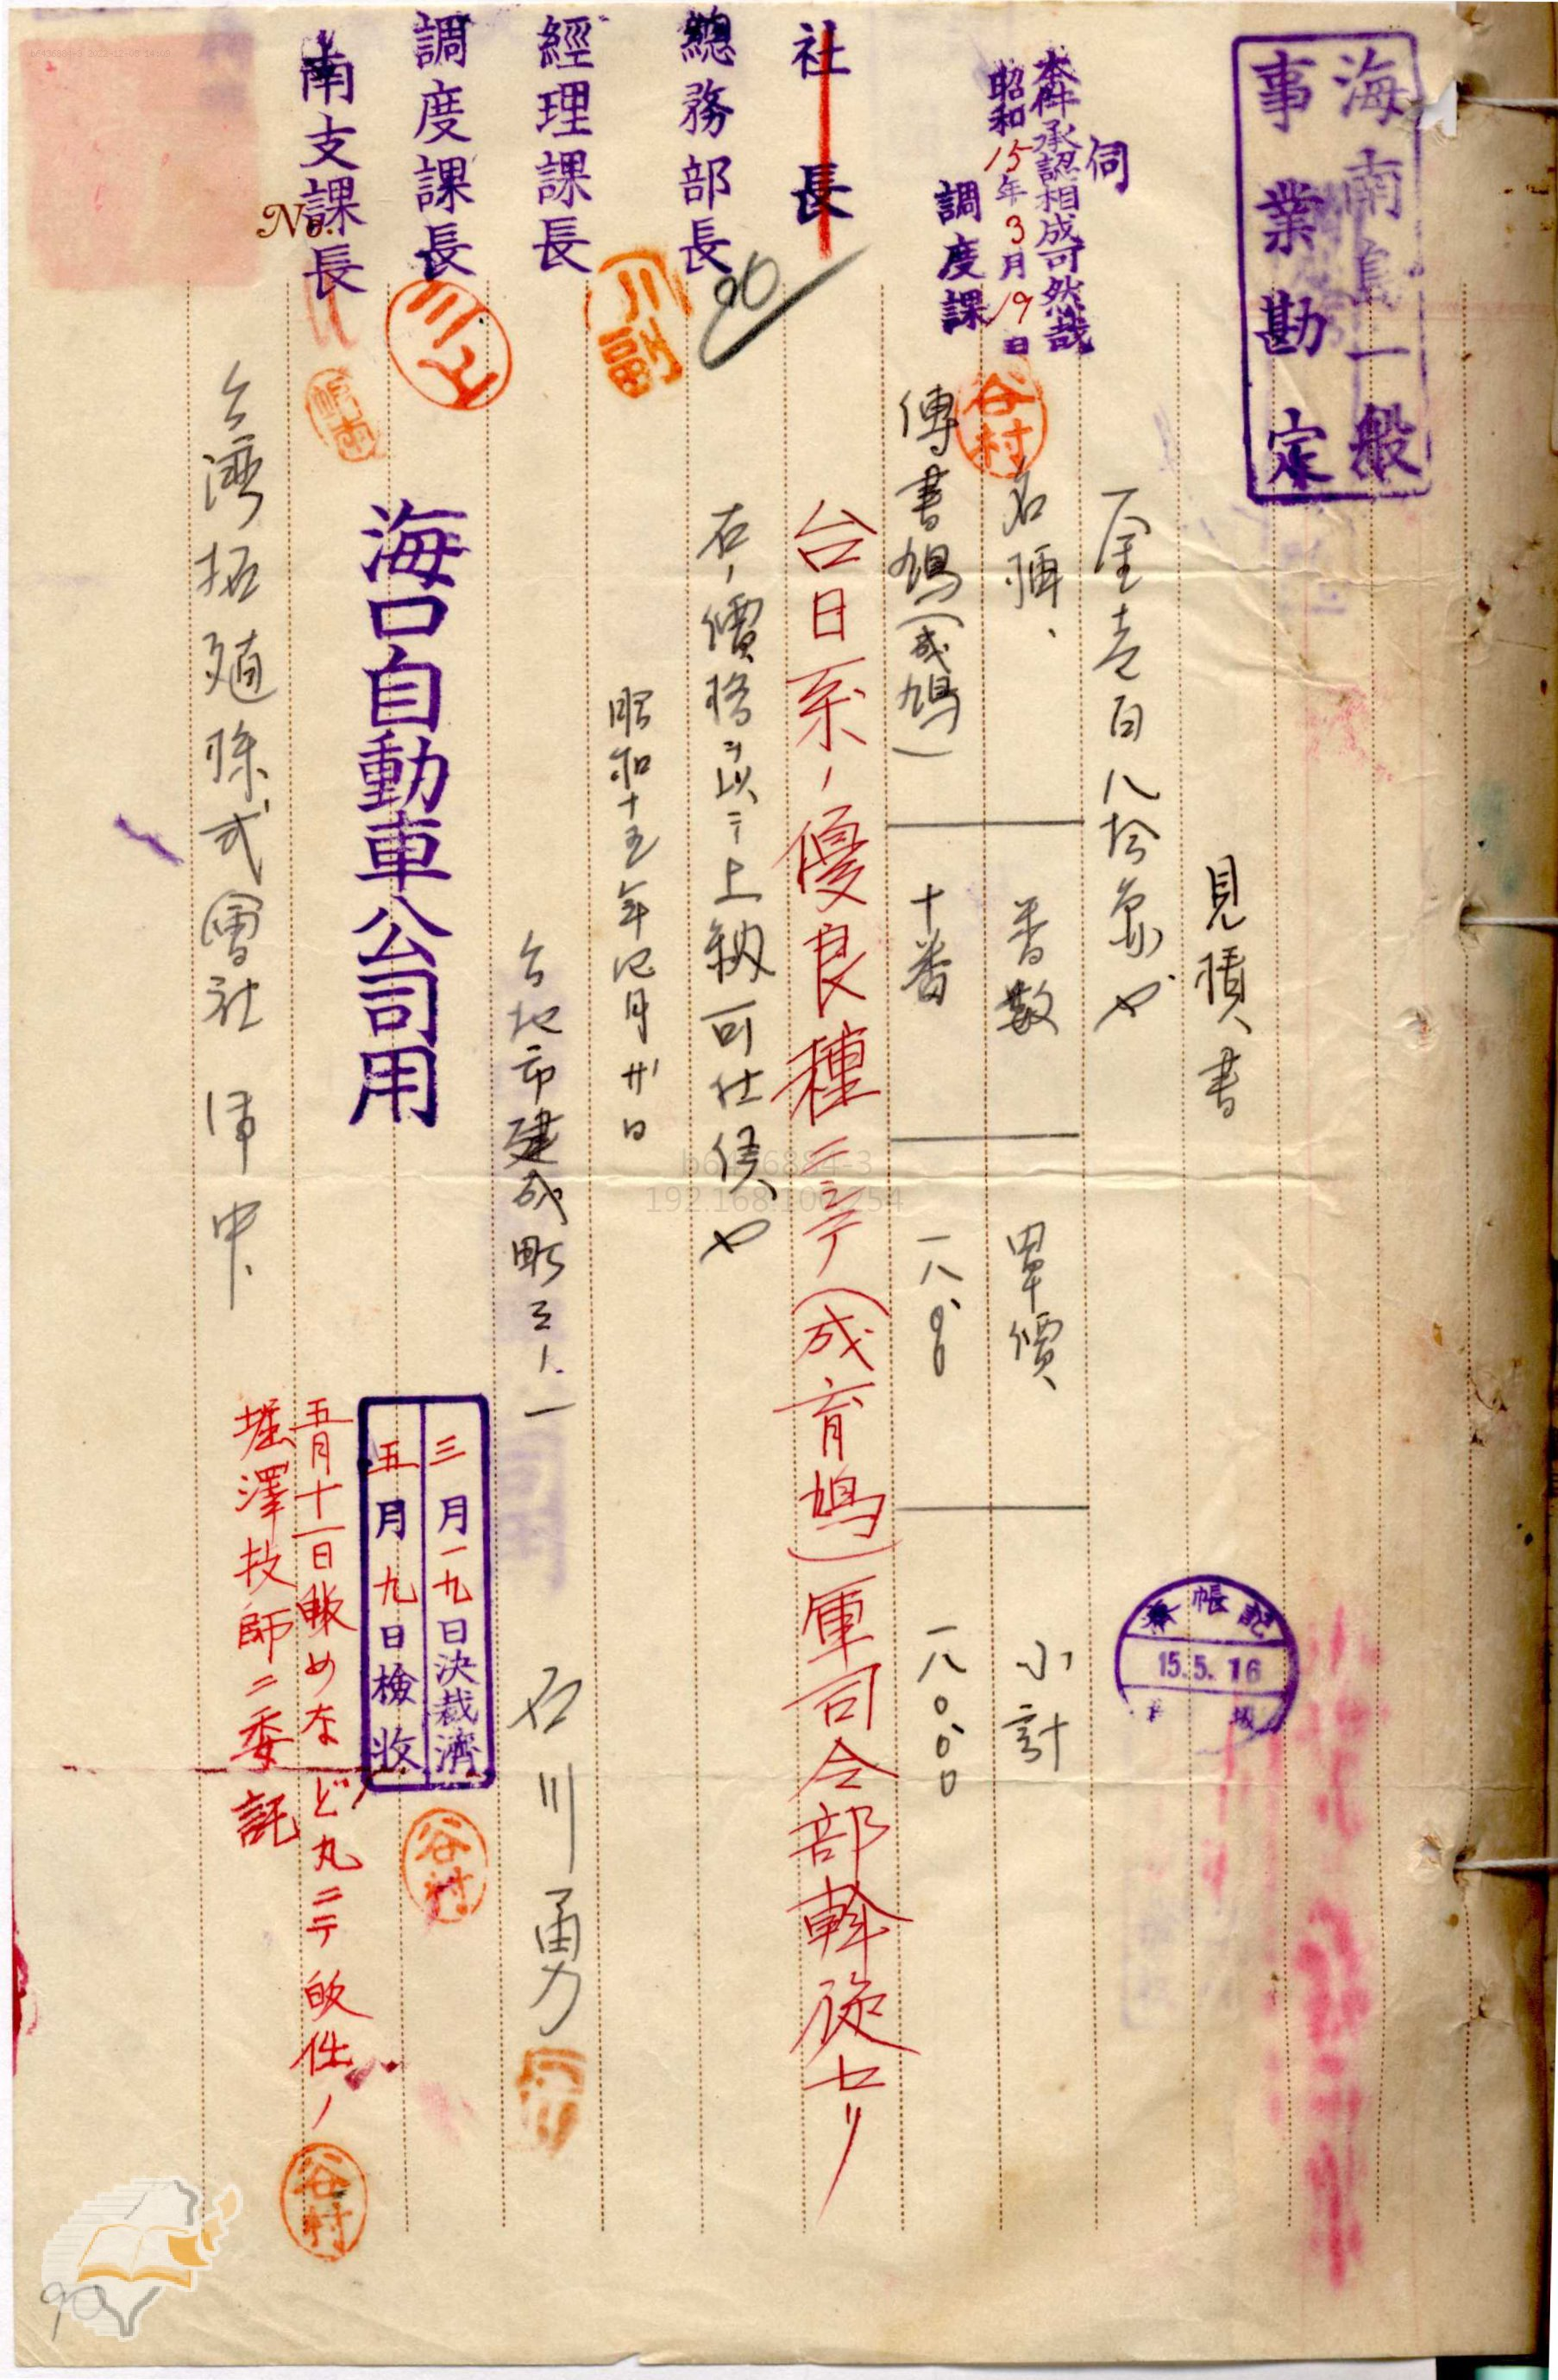 海南島一般
事業勘定
見積書
一金壱百八拾象也
伺
本件承認相成可然哉
昭和15年3月19日
調度課
谷村
名稱、
番數
單價
小計
傳書鳩(成鳩)
十番
一八.〇〇
一八〇.〇〇
記帳濟
15.5.16
社長
台日系ノ優良種ニシテ(成育鳩)軍司令部斡旋セリ
總務部長
右ノ價格ヲ以テ上納可仕候也
經理課長
昭和十五年 月廿日
調度課長
三上
台北市建成町三ノ一
石川勇
南支課長
No.
海口自動車公司用
三月一九日決裁濟
五月九日檢收
谷村
台灣拓殖株式會社 御中
五月十一日
丸ニテ
堀澤技師ニ委託
谷村
b6436884-3
192.168.100.254
90